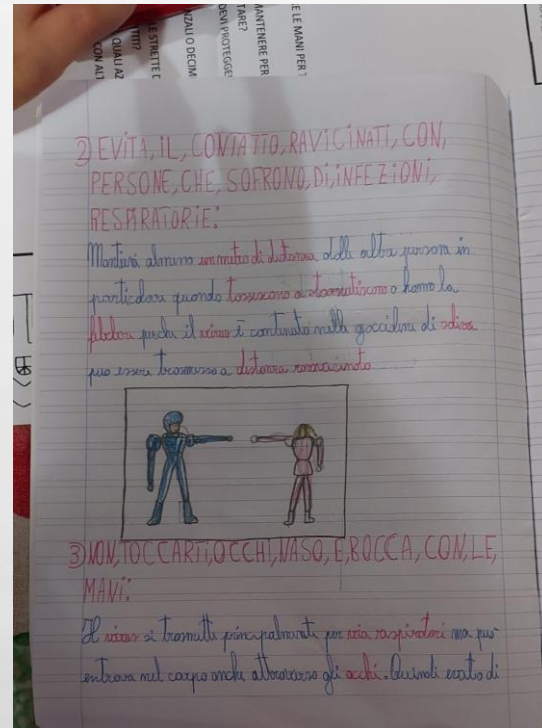 E LE MANI PER
MANTENERE PER
TARE?
DEVI PROTEGGE
NZALI O DECIM
LE STRETTE D
TITI?
QUALI AZ
CON ALT
2) EVITA, IL, CONTATTO, RAVICINATI, CON,
PERSONE, CHE, SOFRONO, DI, INFEZIONI,
RESPIRATORIE:
Mantieni almeno un metro di distanza dalle altre persone in
particolare quando tossiscono o starnutiscono o hanno la
febbre perche il virus è contenuto nelle goccioline di saliva
puo essere trasmesso a distanza
3) NON, TOCCARTI, OCCHI, NASO, E, BOCCA, CON, LE,
MANI:
Il virus si trasmette principalmente per via respiratori ma puo
entrare nel corpo anche attraverso gli occhi. Quindi evita di